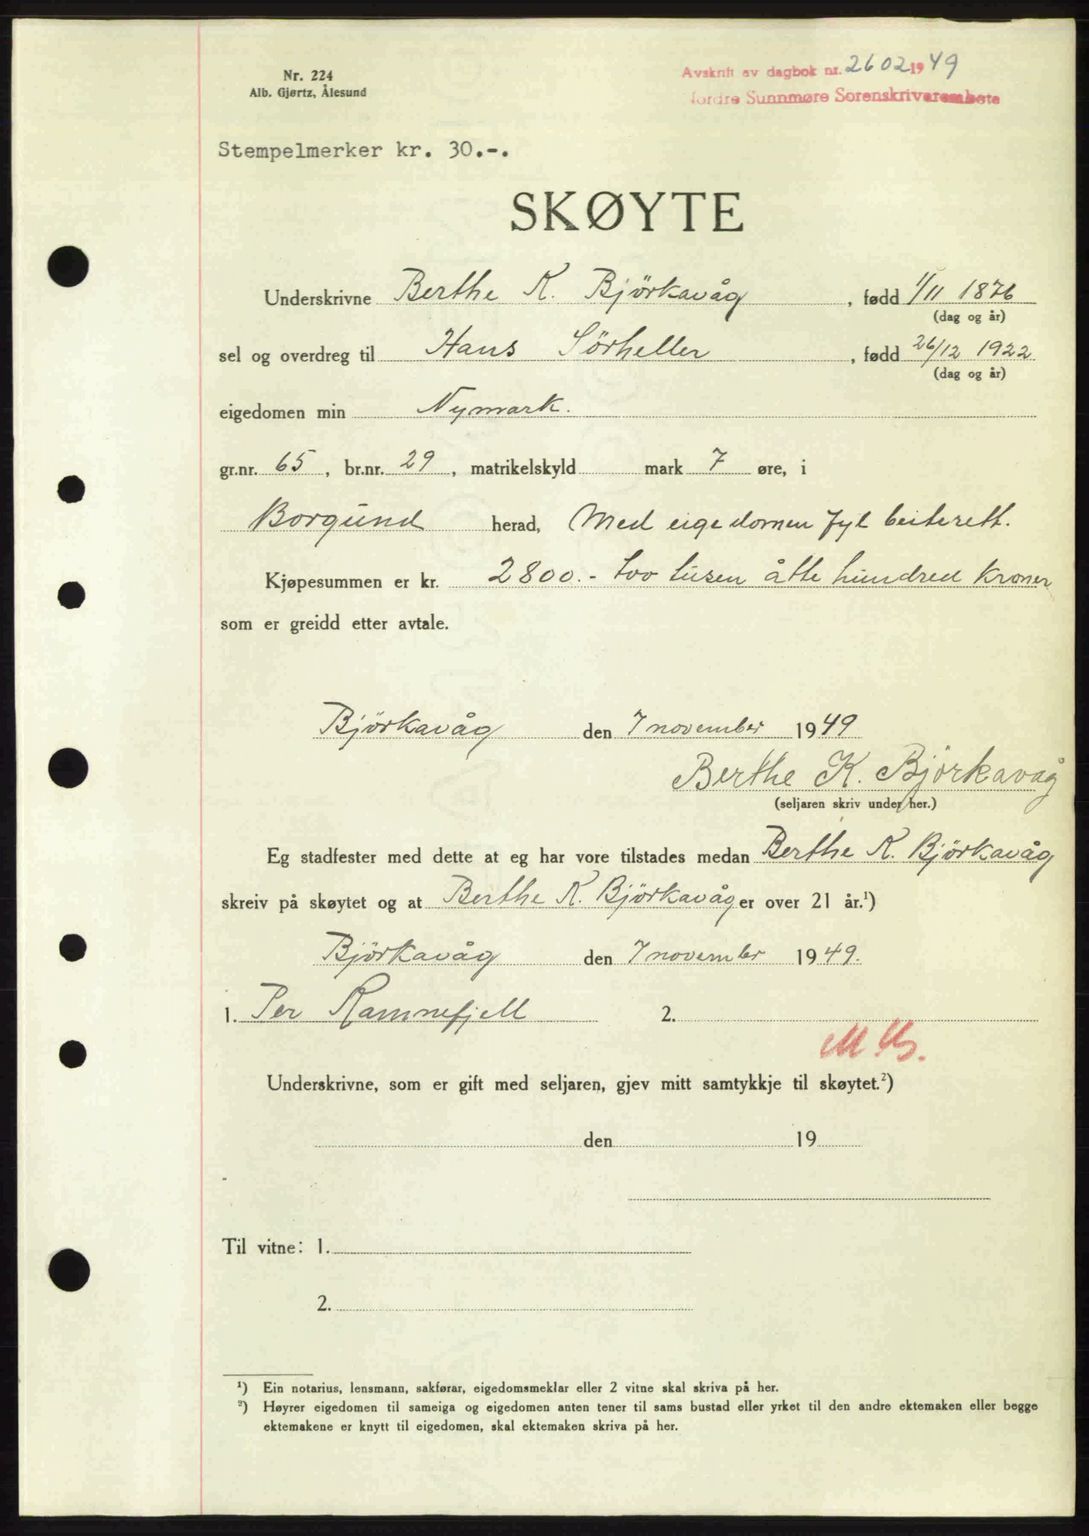 Nr. 224
Alb. Gjørtz, Ålesund
Avskrift av dagbok nr. 2602 1949
Nordre Sunnmøre Sorenskriverembete
Stempelmerker kr. 30.-.
SKØYTE
Underskrivne Berthe K. Björkavåg, fødd 1/11 1876
(dag og år)
sel og overdreg til Hans Sörheller, fødd 26/12 1922
(dag og år)
eigedomen min Nymark.
gr.nr. 65, br.nr. 29, matrikelskyld mark 7 øre, i
Borgund herad, Med eigedomen fyl beiterett.
Kjøpesummen er kr. 2800.- tov tusen åtte hundred kroner
som er greidd etter avtale.
Björkavåg den 7 november 1949
Berthe K. Björkavåg
(seljaren skriv under her.)
Eg stadfester med dette at eg har vore tilstades medan Berthe K. Björkavåg
skreiv på skøytet og at Berthe K. Björkavåg er over 21 år.¹)
Björkavåg den 7 november 1949.
1. Per Ramnefjell 2.
Underskrivne, som er gift med seljaren, gjev mitt samtykkje til skøytet.²)
den 19
Til vitne: 1.
2.
¹) Ein notarius, lensmann, sakførar, eigedomsmeklar eller 2 vitne skal skriva på her.
²) Høyrer eigedomen til sameiga og eigedomen anten tener til sams bustad eller yrket til den andre ektemaken eller begge
ektemakene er knytt til eigedomen, skal ektemaken skriva på her.